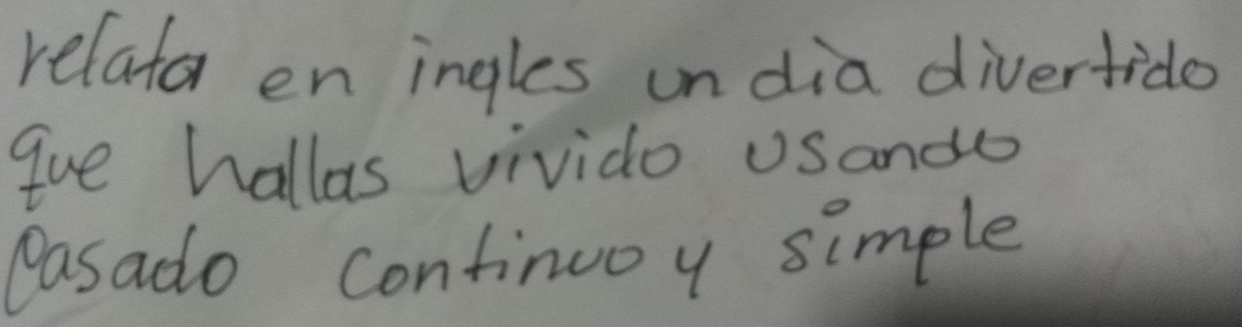 relata en ingles un dìa divertido
que hallas vivido usando
Pasado continuo y simple